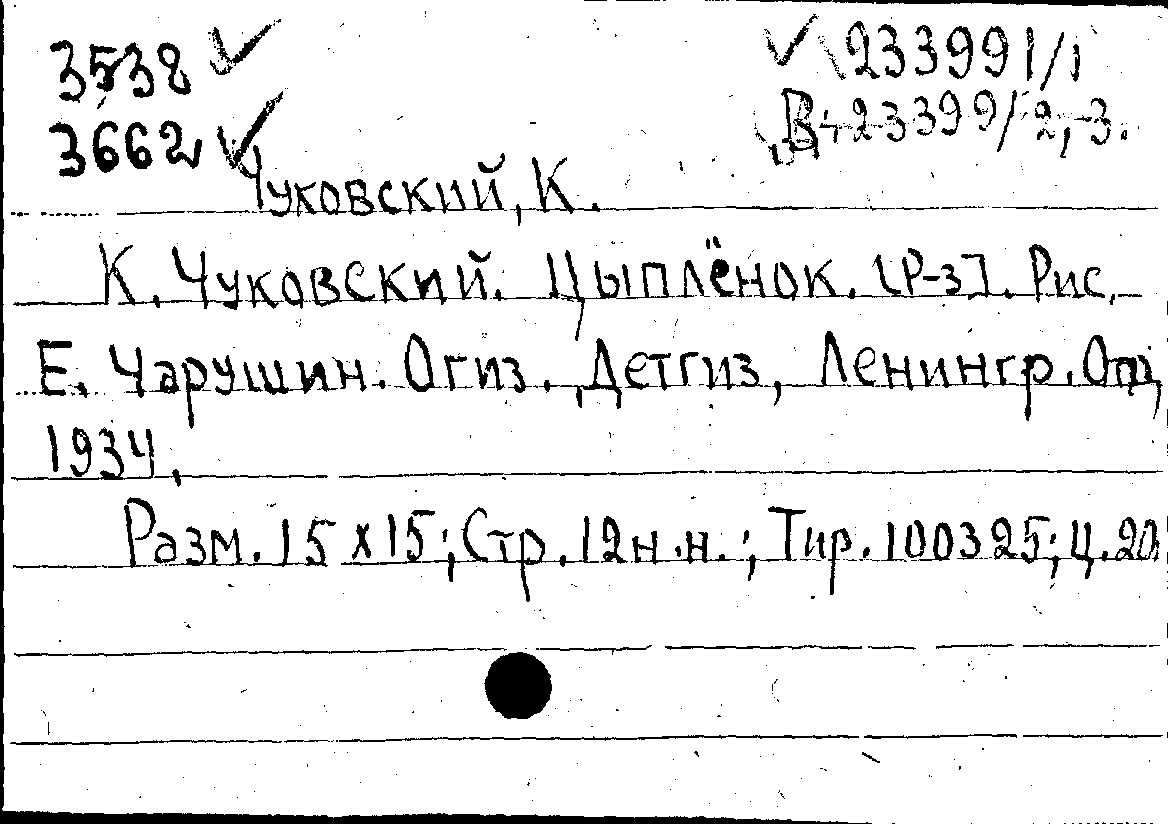 3538 ✓ ✓ 233991/1
3662 ✓ В-23399/2,-3.
Чуковский, К.
К. Чуковский. Цыплёнок. [Р-з]. Рис.
Е. Чарушин. Огиз. Детгиз, Ленингр. Отд,
1934,
Разм. 15 х 15; Стр. 12 н.н.; Тир. 100325; Ц. 20